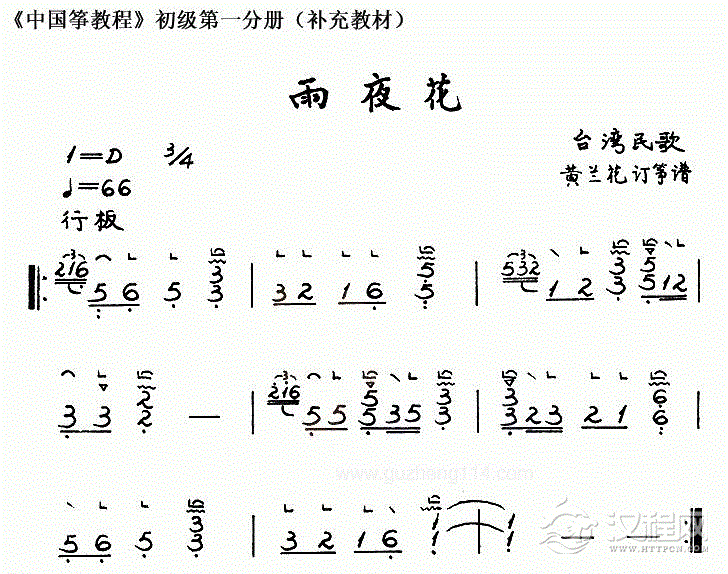 《中国筝教程》初级第一分册（补充教材）
雨夜花
1=D 3/4
台湾民歌
♩=66
黄兰花订筝谱
行板
216 5 6 5 3 3 | 3 2 1 6 5 5 | 532 1 2 3 3 5 5 1 2 |
3 3 2 2 — | 216 5 5 5 5 3 5 3 3 | 3 3 2 3 2 1 6 6 |
www.guzheng114.com
5 6 5 3 3 | 3 2 1 6 1 1 | 1 1 — —
汉程网
WWW.HTTPCN.COM